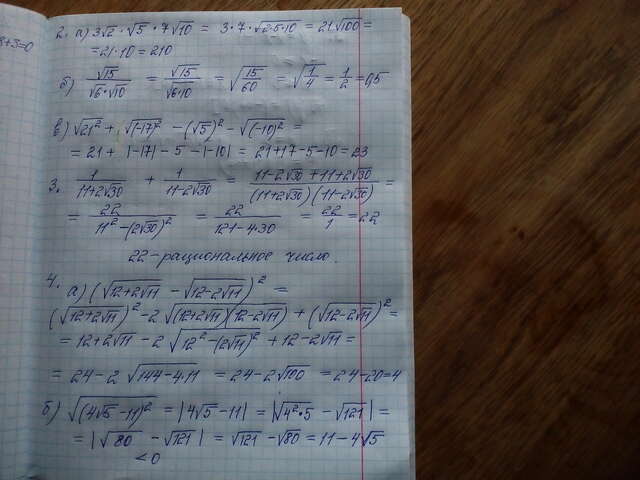 я+3=0
2. а) 3√2 · √5 · 7√10 = 3·7·√(2·5·10) = 21√100 =
= 21·10 = 210
б) √15/(√6·√10) = √15/√(6·10) = √(15/60) = √(1/4) = 1/2 = 0,5
в) √21² + √(-17)² - (√5)² - √(-10)² =
= 21 + |-17| - 5 - |-10| = 21+17-5-10 = 23
3. 1/(11+2√30) + 1/(11-2√30) = (11-2√30+11+2√30)/((11+2√30)(11-2√30)) =
= 22/(11²-(2√30)²) = 22/(121-4·30) = 22/1 = 22
22-рациональное число.
4. а) (√(12+2√11) - √(12-2√11))² =
(√(12+2√11))² - 2√((12+2√11)(12-2√11)) + (√(12-2√11))² =
= 12+2√11 - 2√(12²-(2√11)²) + 12-2√11 =
= 24-2√(144-4·11) = 24-2√100 = 24-20=4
б) √((4√5-11)²) = |4√5-11| = |√(4²·5) - √121| =
= |√80 - √121| = √121 - √80 = 11-4√5
<0